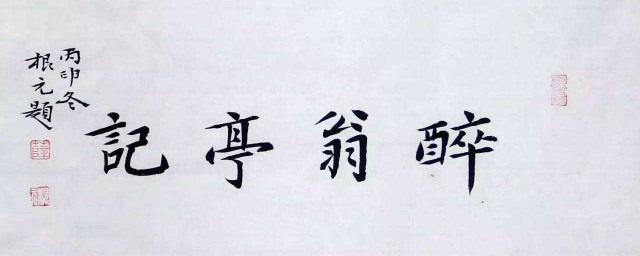 醉翁亭記
丙申冬
根元題